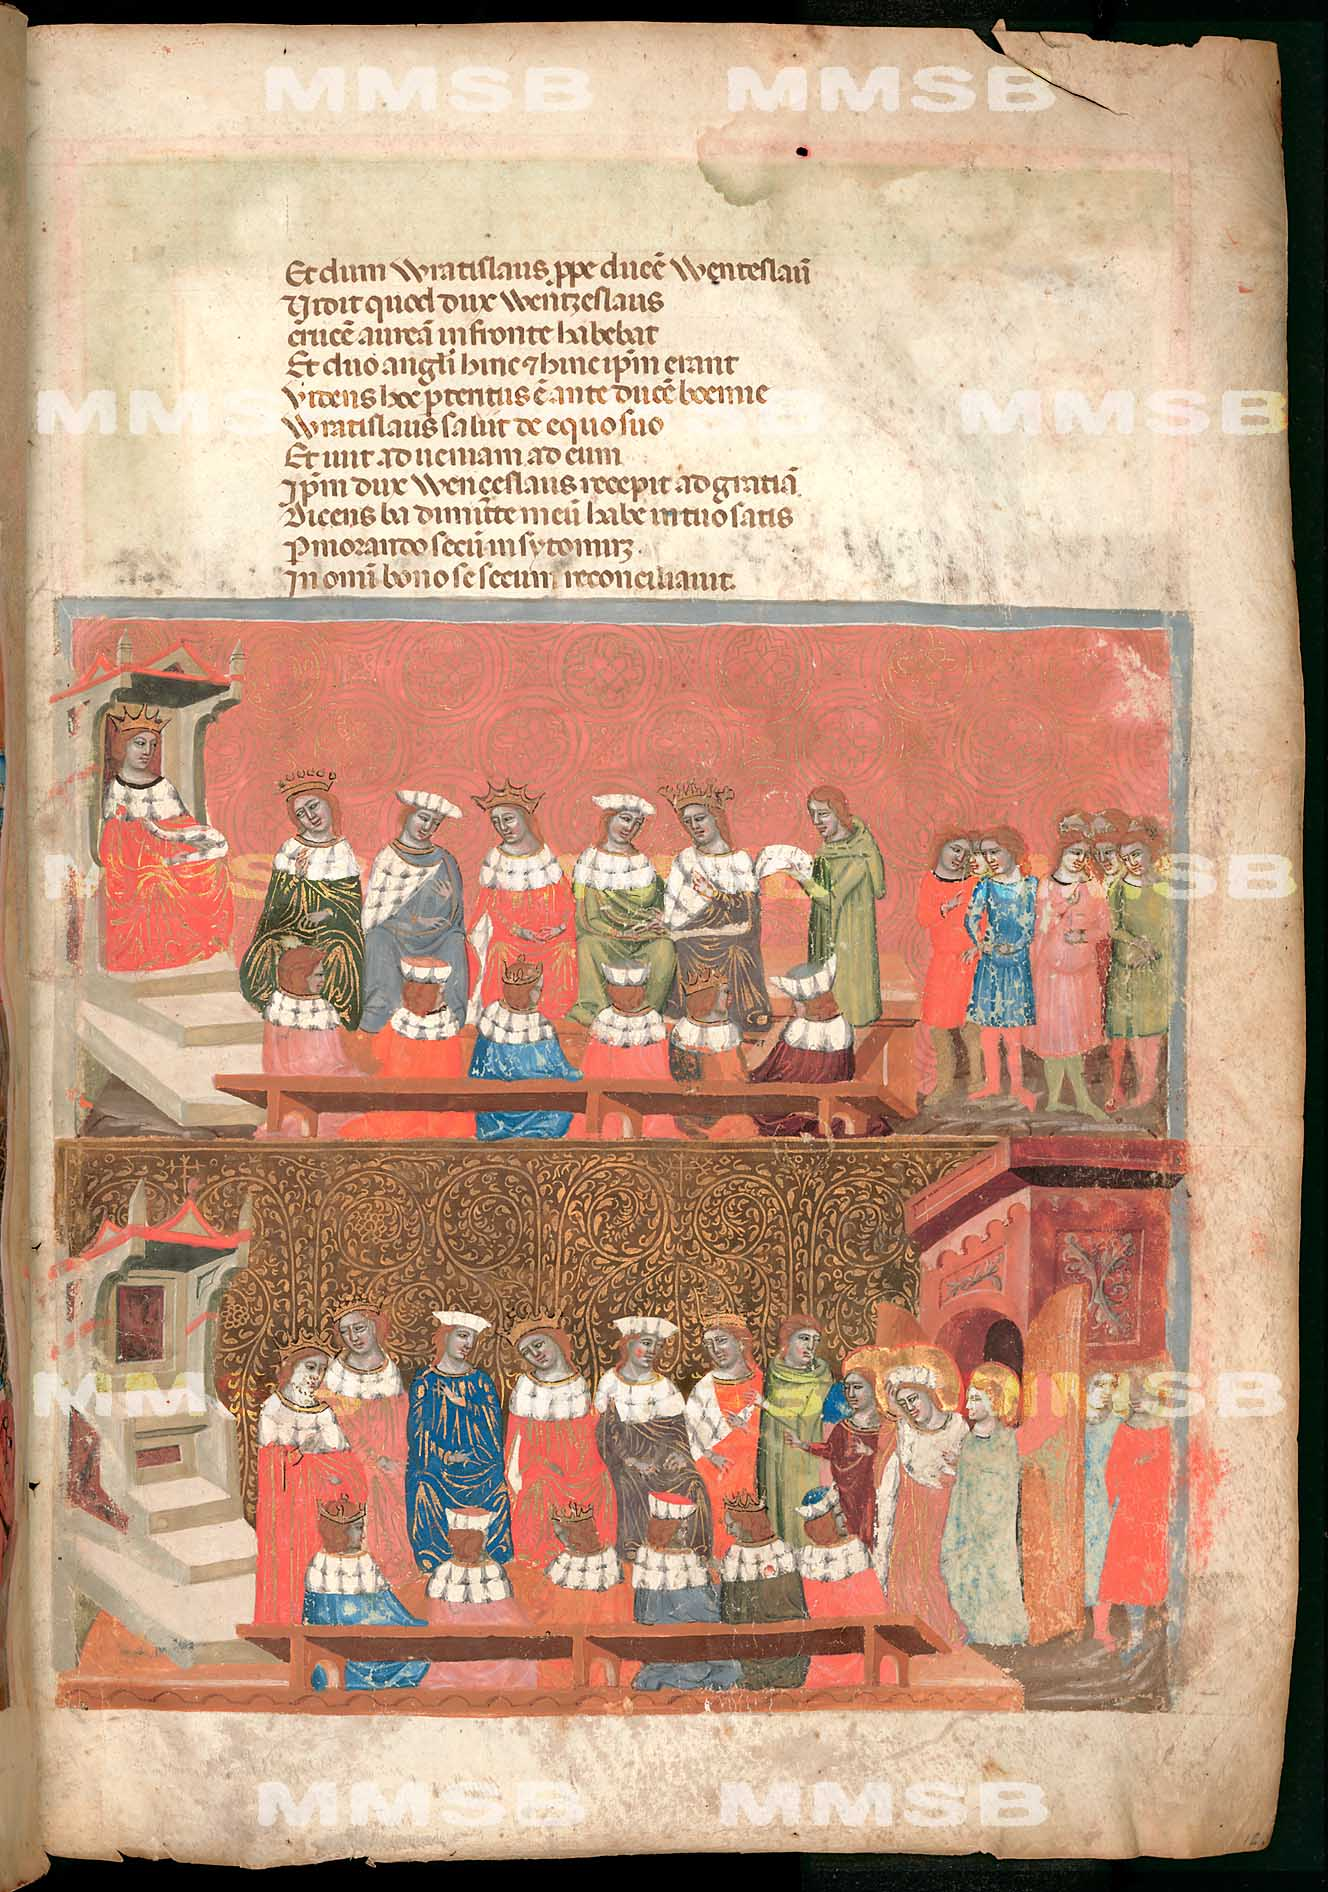 MMSB MMSB
Et dum Wratislaus ꝓpe ducē Wenteslaū
Vidit quod dux Wentzeslaus
crucē aureā in fronte habebat
Et duo angli hinc ⁊ hinc ipm erant
Videns hoc ꝑtentus ē ante ducē boemie
Wratislaus saluit de equo suo
Et iuit ad ueniam ad eum
Ipm dux Wenceslaus recepit ad gratiā
Dicens ba dimitte meū habe in tuo satis
Pmorando secū in sytomirz
In omi bono se secum reconciliauit.
MMSB MMSB
MMSB
MMSB
MMSB
MMSB MMSB